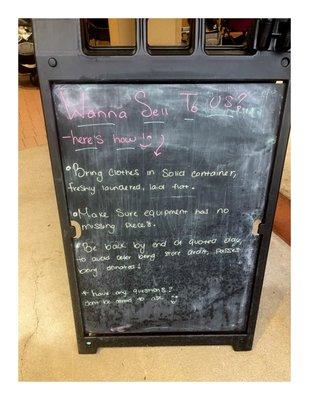 Wanna Sell To US?
-here's how :)
• Bring clothes in Solid container,
freshly laundered, laid flat.
• Make sure equipment has no
missing piece's.
• Be back by end of quoted day,
to avoid offer being store credit, passes
being donated!
* have any questions?
Don't be afraid to ask :)